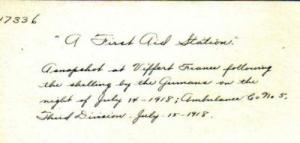 17336
"A First Aid Station."
A snapshot at Viffort France following
the shelling by the Germans on the
night of July 14-1918; Ambulance Co. No 5,
Third Division. July-15-1918.